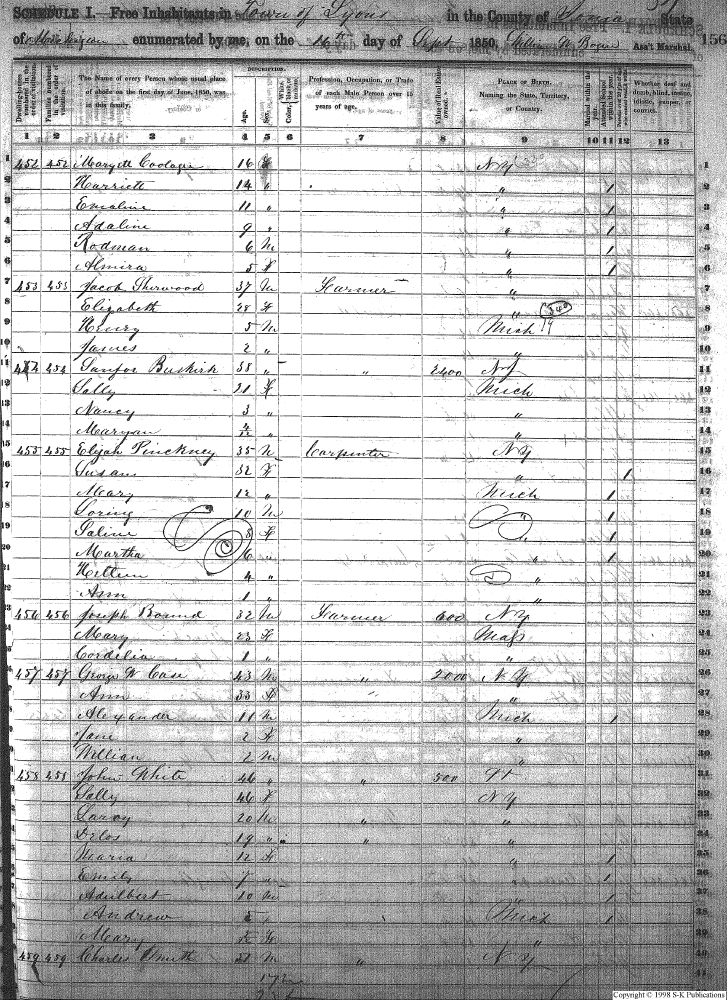 SCHEDULE I.—Free Inhabitants in Town of Lyons in the County of Ionia State
of Michigan enumerated by me, on the 16th day of Sept 1850. Ass't Marshal. 156
DESCRIPTION.
The Name of every Person whose usual place of abode on the first day of June, 1850, was in this family.
Age. Sex. Color,
Profession, Occupation, or Trade of each Male Person over 15 years of age.
Value of Real Estate owned.
PLACE OF BIRTH. Naming the State, Territory, or Country.
Whether deaf and dumb, blind, insane, idiotic, pauper, or convict.
1 2 3 4 5 6 7 8 9 10 11 12 13
1 452 452 16 F NY 1
2 Harriett 14 " " 1 2
3 Emaline 11 " " 1 3
4 Adaline 9 " " 1 4
5 Rodman 6 M " 1 5
6 Almira 5 F " 1 6
7 453 453 Jacob Sherwood 37 M Farmer " 7
8 Elizabeth 28 F " 8
9 Henry 5 M Mich 9
10 James 2 " " 10
11 454 Buskirk 38 " " 2400 NY 11
12 Sally 21 F Mich 12
13 Nancy 3 " " 13
14 Maryan " " 14
15 455 455 Elijah Pinckney 35 M Carpenter NY 15
16 Susan 32 F " 1 16
17 Mary 12 " Mich 1 17
18 Loring 10 M " 1 18
19 8 F 1 19
20 Martha 6 " " 1 20
21 4 " " 21
22 Ann 1 " " 22
23 456 456 Joseph 32 M Farmer 600 NY 23
24 Mary 23 F Mass 24
25 Cordelia 1 " " 25
26 457 457 George W Case 43 M " 2000 NY 26
27 Ann 33 F " 27
28 Alexander 11 M Mich 1 28
29 Jane 2 F " 29
30 William 2 M " 30
31 458 458 John White 46 " " 500 Vt 31
32 Sally 46 F NY 32
33 Leroy 20 M " " 33
34 Delos 19 " " " 34
35 Maria 12 F " 1 35
36 Emily 7 " " 1 36
37 Adelbert 10 M " 1 37
38 Andrew 5 " Mich 1 38
39 Mary F " 39
40 459 459 Charles Smith M " NY 40
Copyright © 1998 S-K Publications